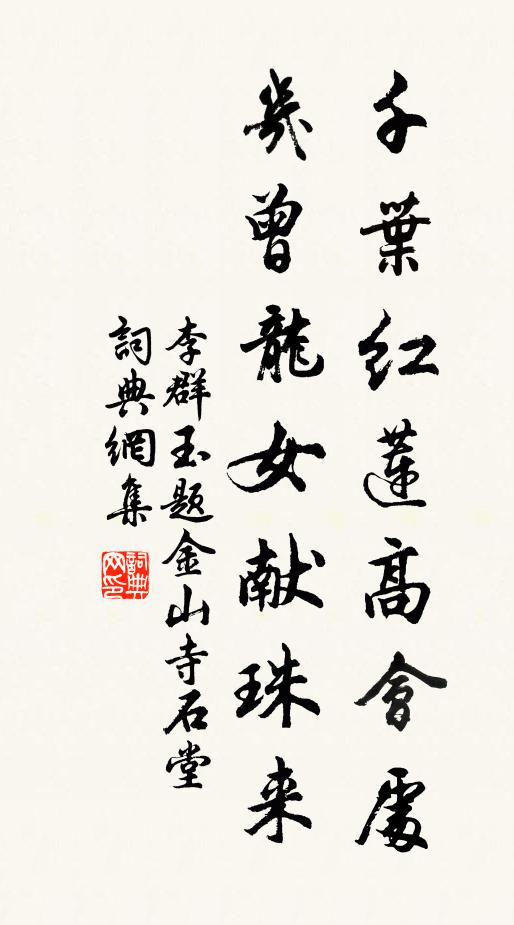 千葉红蓮高會處
幾曾龍女献珠来
李群玉题金山寺石堂
詞典網集
詞典
网印